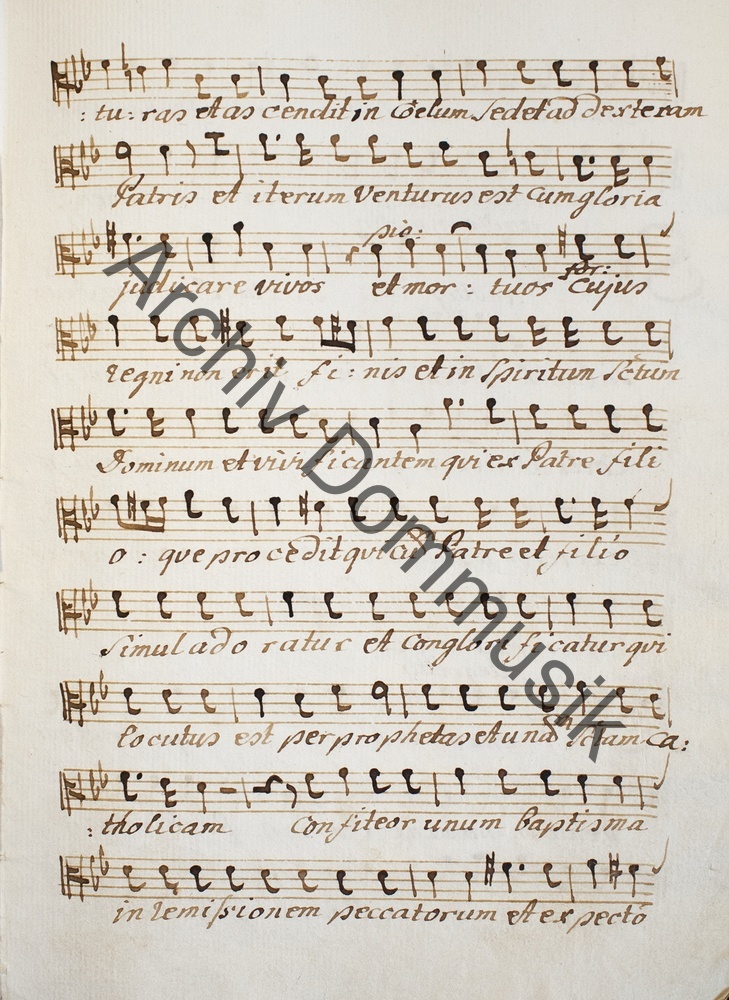 : tu: ras et ascendit in Coelum Sedet ad dexteram
Patris et iterum Venturus est Cum gloria
pio:
for:
judicare vivos et mor: tuos Cujus
regni non erit fi: nis et in Spiritum Sctum
Dominum et vivificantem qvi ex Patre fili
o: que procedit qvi cu Patre et filio
Simul adoratur et Conglorificatur qvi
locutus est per prophetas et una Sctam Ca:
: tholicam Confiteor unum baptisma
in remissionem peccatorum et expecto
Archiv Dommusik